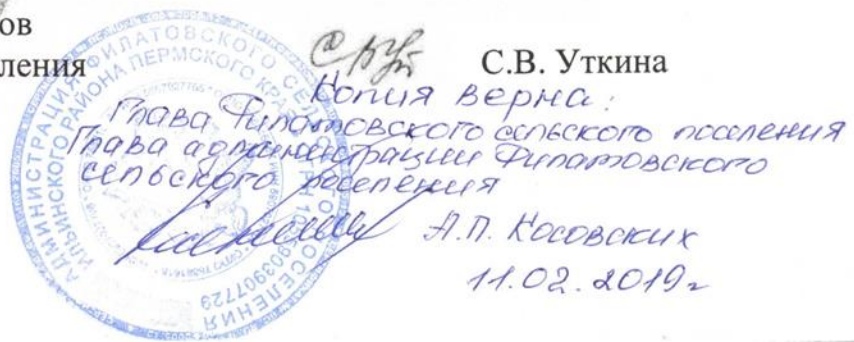 ов
ления
С.В. Уткина
Копия верна:
Глава Филатовского сельского поселения
Глава администрации Филатовского
сельского поселения
А.П. Косовских
11.02.2019г
АДМИНИСТРАЦИЯ ФИЛАТОВСКОГО СЕЛЬСКОГО ПОСЕЛЕНИЯ
ИЛЬИНСКОГО РАЙОНА ПЕРМСКОГО КРАЯ